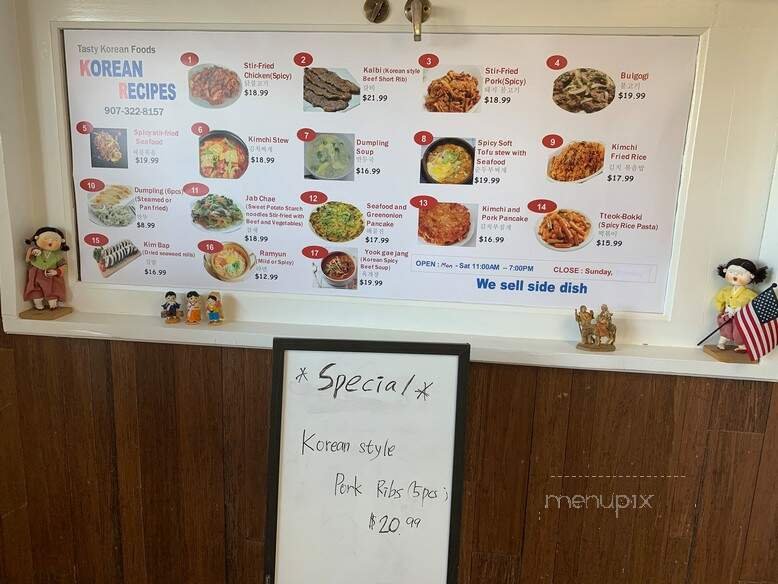 Tasty Korean Foods
KOREAN
RECIPES
907-322-8157
1
Stir-Fried
Chicken(Spicy)
닭불고기
$18.99
2
Kalbi (Korean style
Beef Short Rib)
갈비
$21.99
3
Stir-Fried
Pork(Spicy)
돼지 불고기
$18.99
4
Bulgogi
불고기
$19.99
5
Spicy stir-fried
Seafood
해물볶음
$19.99
6
Kimchi Stew
김치찌개
$18.99
7
Dumpling
Soup
만두국
$16.99
8
Spicy Soft
Tofu stew with
Seafood
순두부찌개
$19.99
9
Kimchi
Fried Rice
김치 볶음밥
$17.99
10
Dumpling (6pcs)
(Steamed or
Pan fried)
만두
$8.99
11
Jab Chae
(Sweet Potato Starch
noodles Stir-fried with
Beef and Vegetables)
잡채
$18.99
12
Seafood and
Greenonion
Pancake
해물전
$17.99
13
Kimchi and
Pork Pancake
김치부침개
$16.99
14
Tteok-Bokki
(Spicy Rice Pasta)
떡볶이
$15.99
15
Kim Bap
(Dried seaweed rolls)
김밥
$16.99
16
Ramyun
(Mild or Spicy)
라면
$12.99
17
Yook gae jang
(Korean Spicy
Beef Soup)
육개장
$19.99
OPEN : Mon - Sat 11:00AM ~ 7:00PM
CLOSE : Sunday,
We sell side dish
* Special *
Korean style
Pork Ribs (5pcs)
$20.99
menupix